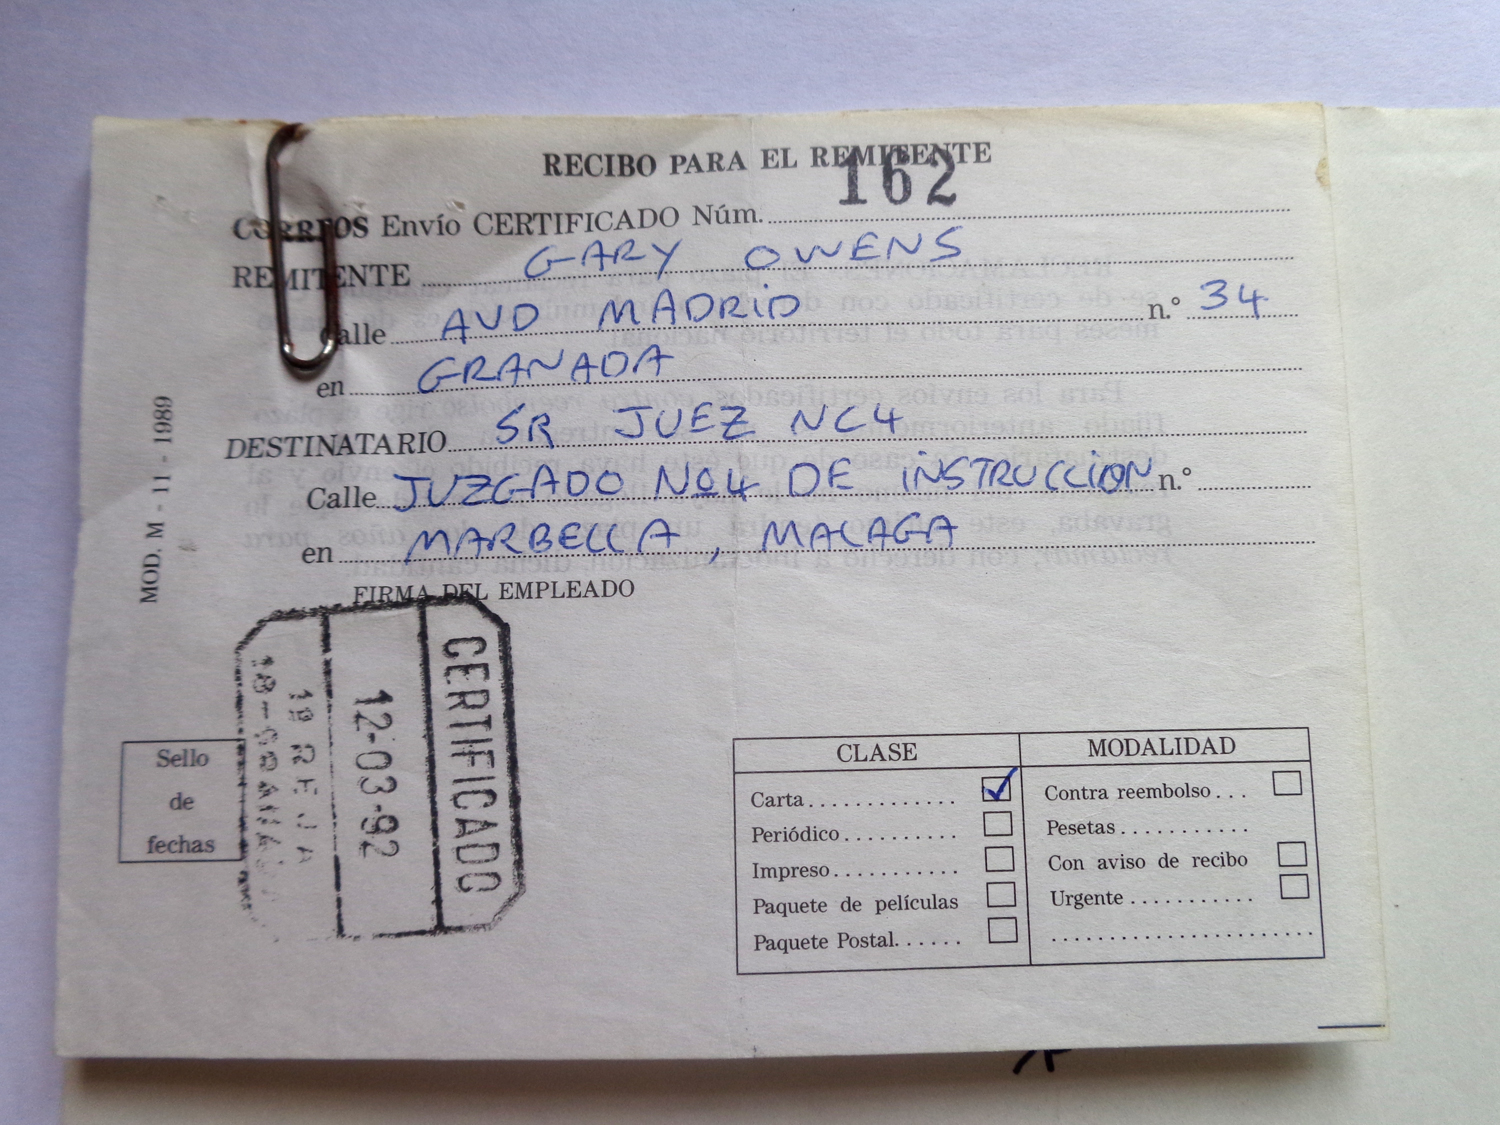 RECIBO PARA EL REMITENTE
162
CORREOS Envío CERTIFICADO Núm.
REMITENTE GARY OWENS
Calle AVD MADRID n.º 34
en GRANADA
DESTINATARIO SR JUEZ NC4
Calle JUZGADO Nº4 DE INSTRUCCION n.º
en MARBELLA, MALAGA
MOD. M - 11 - 1989
FIRMA DEL EMPLEADO
Sello
de
fechas
CERTIFICADO
12-03-92
CLASE
Carta
Periódico
Impreso
Paquete de películas
Paquete Postal
MODALIDAD
Contra reembolso
Pesetas
Con aviso de recibo
Urgente